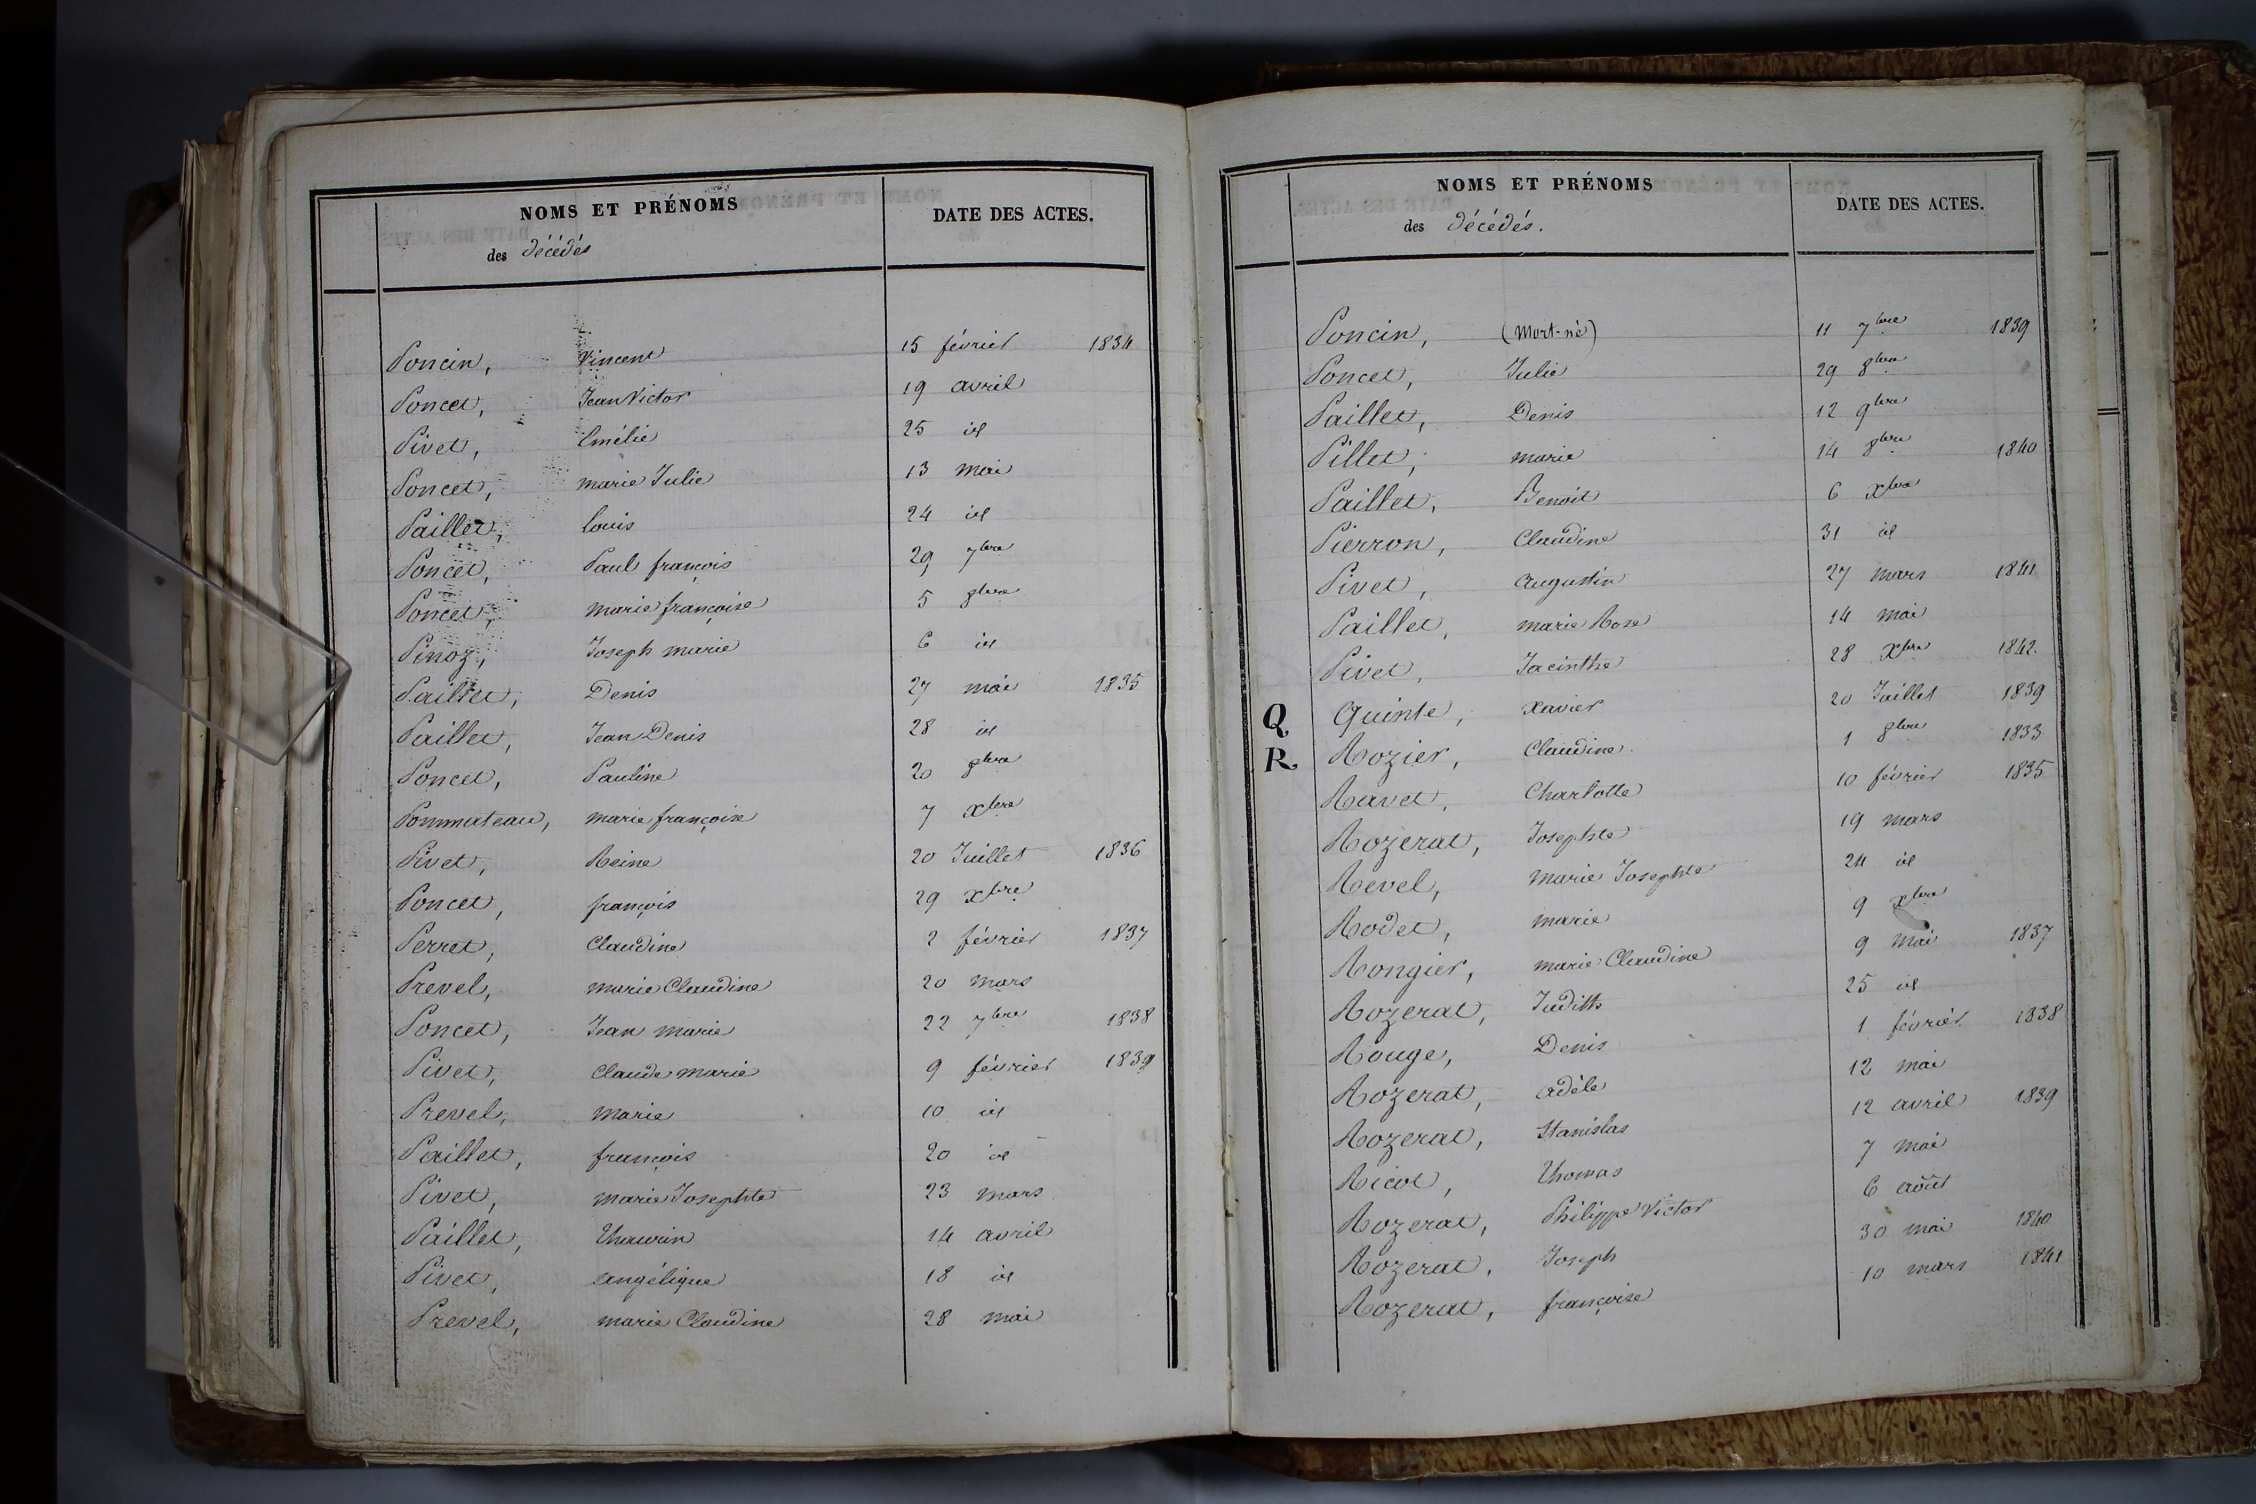 NOMS ET PRÉNOMS
des décédés
DATE DES ACTES.
Poncin, Vincent 15 février 1834
Poncet, Jean Victor 19 avril
Pivet, Emélie 25 id
Poncet, marie Julie 13 mai
Paillet, louis 24 id
Poncet, Paul françois 29 7bre
Poncet, marie françoise 5 8bre
Pinoz, Joseph marie 6 id
Paillet, Denis 27 mai 1835
Paillet, Jean Denis 28 id
Poncet, Pauline 20 8bre
Pommateau, marie françoise 7 xbre
Pivet, Reine 20 Juillet 1836
Poncet, françois 29 xbre
Perret, Claudine 2 février 1837
Prevel, marie Claudine 20 mars
Poncet, Jean marie 22 7bre 1838
Pivet, Claude marie 9 février 1839
Prevel, marie 10 id
Paillet, françois 20 id
Pivet, marie Josephte 23 mars
Paillet, Thaurin 14 avril
Pivet, angélique 18 id
Prevel, marie Claudine 28 mai
NOMS ET PRÉNOMS
des décédés.
DATE DES ACTES.
Poncin, (Mort-né) 11 7bre 1839
Poncet, Julie 29 8bre
Paillet, Denis 12 9bre
Pillet, marie 14 8bre 1840
Paillet, Benoit 6 xbre
Pierron, Claudine 31 id
Pivet, augustin 27 mars 1841
Paillet, marie Rose 14 mai
Pivet, Jacinthe 28 xbre 1842
Q Quinte, xavier 20 Juillet 1839
R Rozier, Claudine 1 8bre 1833
Ravet, Charlotte 10 février 1835
Rozerat, Josephte 19 mars
Revel, marie Josephte 24 id
Rodet, marie 9 xbre
Rongier, marie Claudine 9 mai 1837
Rozerat, Judith 25 id
Rouge, Denis 1 février 1838
Rozerat, adèle 12 mai
Rozerat, Stanislas 12 avril 1839
Ricot, Thomas 7 mai
Rozerat, Philippe Victor 6 août
Rozerat, Joseph 30 mai 1840
Rozerat, françoise 10 mars 1841